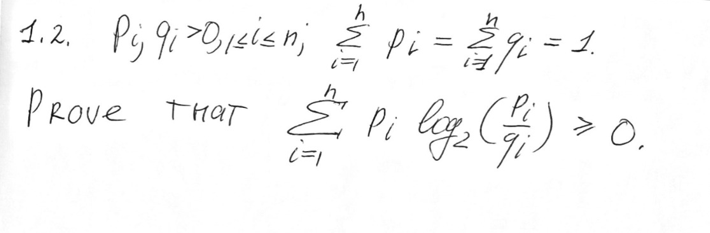 1.2. Pi, qi >0, 1≤i≤n; ∑_{i=1}^{n} Pi = ∑_{i=1}^{n} qi = 1.
PROVE THAT ∑_{i=1}^{n} Pi log₂ (Pi/qi) ≥ 0.